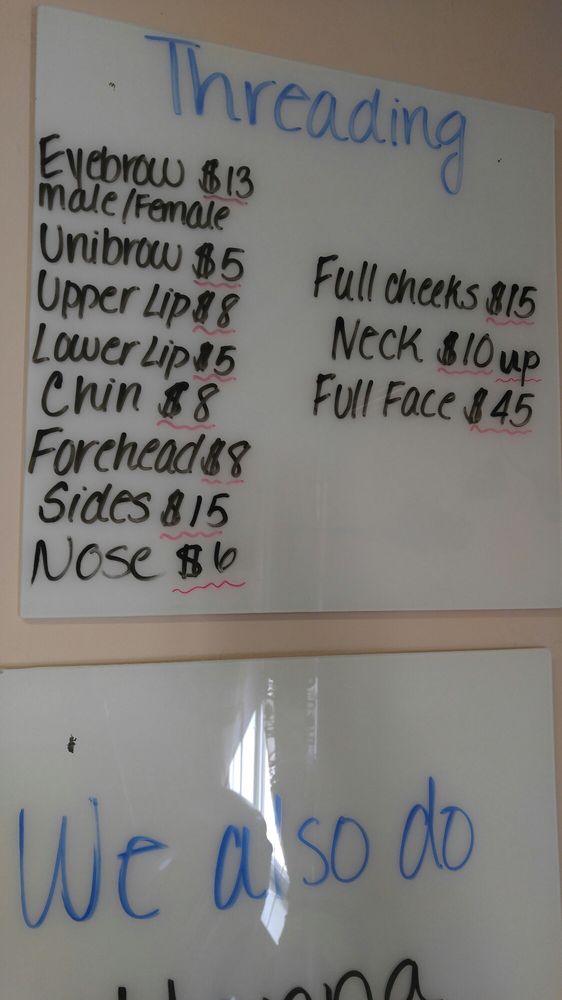 Threading
Eyebrow $13
male/Female
Unibrow $5
Upper Lip $8
Lower Lip $5
Chin $8
Forehead $8
Sides $15
Nose $6
Full cheeks $15
Neck $10 up
Full Face $45
We also do